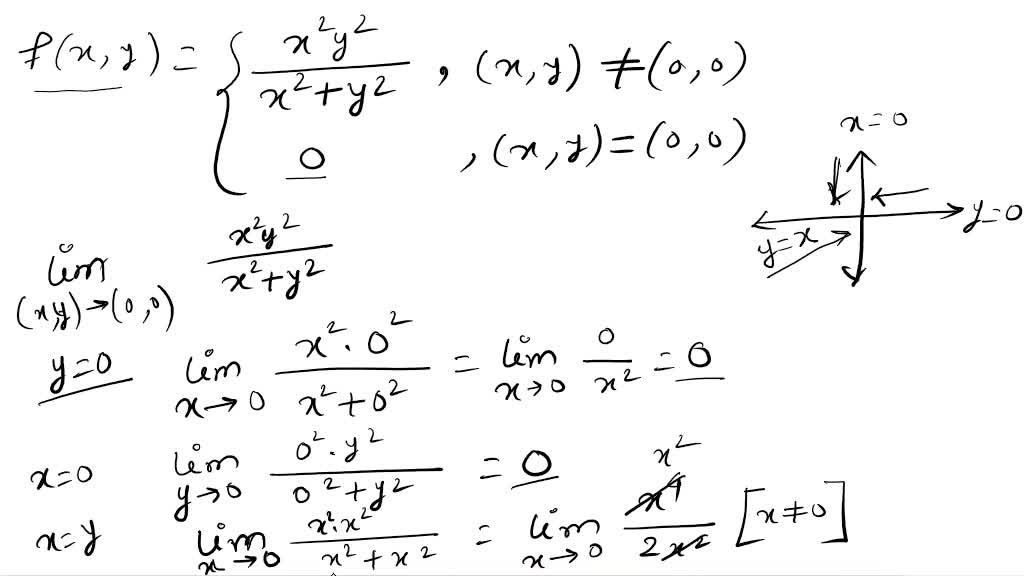 f(x, y) = { x²y² / x²+y² , (x, y) ≠ (0, 0)
0 , (x, y) = (0, 0)
x=0
y=0
y=x
lim (x,y)→(0,0) x²y² / x²+y²
y=0 lim x→0 x²·0² / x²+0² = lim x→0 0 / x² = 0
x=0 lim y→0 0²·y² / 0²+y² = 0
x=y lim x→0 x²·x² / x²+x² = lim x→0 x⁴ / 2x² x² [x≠0]